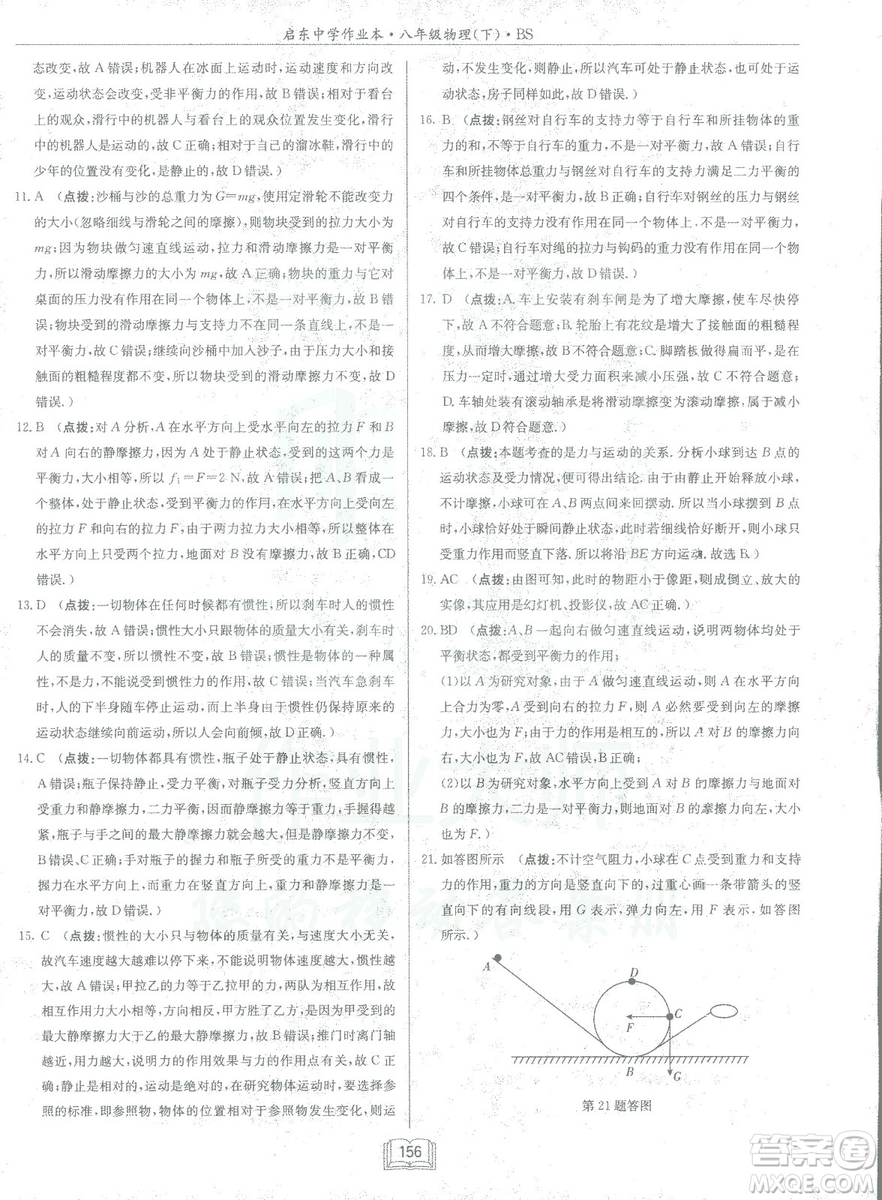 启东中学作业本·八年级物理(下)·BS
态改变,故 A 错误;机器人在冰面上运动时,运动速度和方向改
变,运动状态会改变,受非平衡力的作用,故 B 错误;相对于看台
上的观众,滑行中的机器人与看台上的观众位置发生变化,滑行
中的机器人是运动的,故 C 正确;相对于自己的溜冰鞋,滑行中的
少年的位置没有变化,是静止的,故 D 错误。)
11. A (点拨:沙桶与沙的总重力为 G=mg,使用定滑轮不能改变力
的大小(忽略细线与滑轮之间的摩擦),故物块受到的拉力大小为
mg;因为物块做匀速直线运动,拉力和滑动摩擦力是一对平衡
力,所以滑动摩擦力的大小为 mg,故 A 正确;物块的重力与它对
桌面的压力没有作用在一个物体上,不是一对平衡力,故 B 错
误;物块受到的滑动摩擦力与支持力不在一条直线上,不是一对
平衡力,故 C 错误;继续向沙桶中加入沙子,由于压力大小和接
触面的粗糙程度都不变,所以物块受到的滑动摩擦力不变,故 D
错误。)
12. B (点拨:对 A 分析,A 在水平方向上受水平向左的拉力 F 和 B
对 A 向右的静摩擦力,因为 A 处于静止状态,受到的这两个力是
平衡力,大小相等,所以 f₁=F=2 N,故 A 错误;把 A、B 看成一
个整体,处于静止状态,受平衡力的作用,在水平方向上受向左
的拉力 F 和向右的拉力 F,由于两力拉力大小相等,所以整体在
水平方向上只受两个拉力,地面对 B 没有摩擦力,故 B 正确,CD
错误。)
13. D (点拨:一切物体在任何时候都有惯性,所以刹车时人的惯性
不会消失,故 A 错误;惯性大小只跟物体的质量大小有关,刹车时
人的质量不变,所以惯性不变,故 B 错误;惯性是物体的一种属
性,不是力,不能说受到惯性力的作用,故 C 错误;当汽车急刹车
时,人的下半身随车停止运动,而上半身由于惯性仍保持原来的
运动状态继续向前运动,所以人会向前倾,故 D 正确。)
14. C (点拨:一切物体都具有惯性,瓶子处于静止状态,具有惯性,故
A 错误;瓶子保持静止,受力平衡,对瓶子受力分析,竖直方向上
受重力和静摩擦力,且静摩擦力等于重力,增大手的握力,握得越
紧,瓶子与手之间的最大静摩擦力就会越大,但静摩擦力不变,
B 错误,C 正确;手对瓶子的握力和瓶子所受重力不是平衡力,
握力在水平方向上,而重力在竖直方向上,它与竖直方向上的静
摩擦力相平衡,故 D 错误。)
15. C (点拨:惯性的大小只与物体的质量有关,与速度大小无关,
故汽车速度越大越难以停下来,不能说明速度越大惯性越大,故
A 错误;甲拉乙的力与乙拉甲的力是一对相互作用力,大小相
等,甲队在拔河比赛中,甲方胜了乙方,是因为地面给甲方的
最大静摩擦力大于乙的最大静摩擦力,故 B 错误;推门时离门轴
越近,用力越大,说明力的作用效果与力的作用点有关,故 C 正
确;静止是相对的,运动是绝对的,研究物体运动时,选择的参照
物不同,即参照物,物体与参照物之间的位置发生了变化,则运
动,不发生变化,则静止,所以汽车可处于静止状态,也可处于运
动状态,房子同样如此,故 D 错误。)
16. B (点拨:钢丝对自行车的支持力等于自行车和所挂物体的重力
的和,不是一对平衡力,故 A 错误;自行车和所挂物体的总重力
和所挂物体的总重力与钢丝对自行车的支持力满足二力平衡的
四个条件,是一对平衡力,故 B 正确;自行车对钢丝的压力与钢丝
对自行车的支持力没有作用在同一个物体上,不是一对平衡力,
故 C 错误;自行车对绳的拉力与钩码的重力方向相同,不是一对
平衡力,故 D 错误。)
17. D (点拨:A. 车上安装有刹车闸是为了增大摩擦,以便尽快停
下,故 A 不符合题意;B. 轮胎上有花纹是增大了接触面的粗糙程
度,从而增大摩擦,故 B 不符合题意;C. 脚踏板做得扁而平,是在
压力一定时,通过增大受力面积来减小压强,故 C 不符合题意;
D. 车轴处装有滚动轴承是变滑动摩擦为滚动摩擦,属于减小
摩擦,故 D 符合题意。)
18. B (点拨:本题考查的是力与运动的关系。分析小球到达 B 点的
运动状态及受力情况,便可得出结论。由静止开始释放小球,
不计摩擦,小球可在 A、B 两点间来回摆动。所以当小球运动至
B 点时,小球恰好处于瞬间静止状态,此时若细线恰好断开,则只受
重力作用而竖直下落。所以将沿 BE 方向运动,故选 B。)
19. AC (点拨:由图可知,此时的物距小于像距,则成倒立、放大的
实像,其应用是幻灯机、投影仪,故选 AC。)
20. BD (点拨:A、B 一起向右做匀速直线运动,说明两物体均处于
平衡状态,都受到平衡力的作用;
(1)以 A 为研究对象,由于 A 做匀速直线运动,所以 A 在水平方向
上合力为零,A 受到向右的 F,所以 A 必然要受到 B 向左的摩擦
力,大小也为 F;由于力的作用是相互的,所以 A 对 B 的摩擦力
大小也为 F,方向向右,故 AC 错误;
(2)以 B 为研究对象,水平方向上受到 A 对 B 的摩擦力,方向向
右,大小为 F,则地面对 B 的摩擦力与 A 对 B 的摩擦力
大小相等,二力是一对平衡力,则地面对 B 的摩擦力向左,大小
也为 F。)
21. 如答图所示 (点拨:不计空气阻力,小球在 C 点受到重力和支持
力的作用,重力的方向是竖直向下的,过重心画一条带箭头的竖
直向下的有向线段,用 G 表示,弹力向左,用 F 表示,如答图
所示。)
A
D
C
F
B
G
第 21 题答图
156
答案圈
MXQE.COM